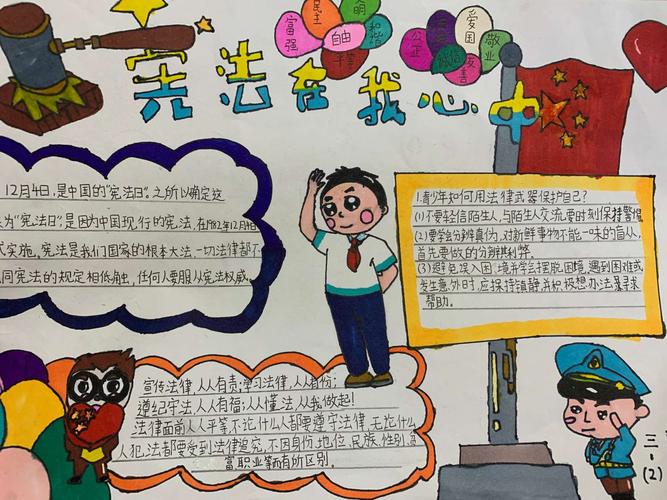 宪法在我心中
富强
民主
自由
和谐
平等
公正
爱国
敬业
诚信
友善
12月4日,是中国的"宪法日".之所以确定这
为"宪法日",是因为中国现行的宪法,在1982年12月4日
式实施,宪法是我们国家的根本大法,一切法律都不
同宪法的规定相抵触,任何人要服从宪法权威.
1.青少年如何用法律武器保护自己?
(1)不要轻信陌生人,与陌生人交流要时刻保持警惕
(2)要学会分辨真伪,对新鲜事物不能一味的盲从,
首先要做的分辨其利弊.
(3)避免误入困境并学会摆脱困境,遇到困难或
发生意外时,应保持镇静并积极想办法寻求
帮助.
宣传法律,人人有责;学习法律,人人有份;
遵纪守法,人人有福;人人懂法,从我做起!
法律面前人人平等,不论什么人都要遵守法律,无论什么
人犯法都要受到法律追究,不因身份,地位,民族,性别,
富,职业等而有所区别.
三-(2)